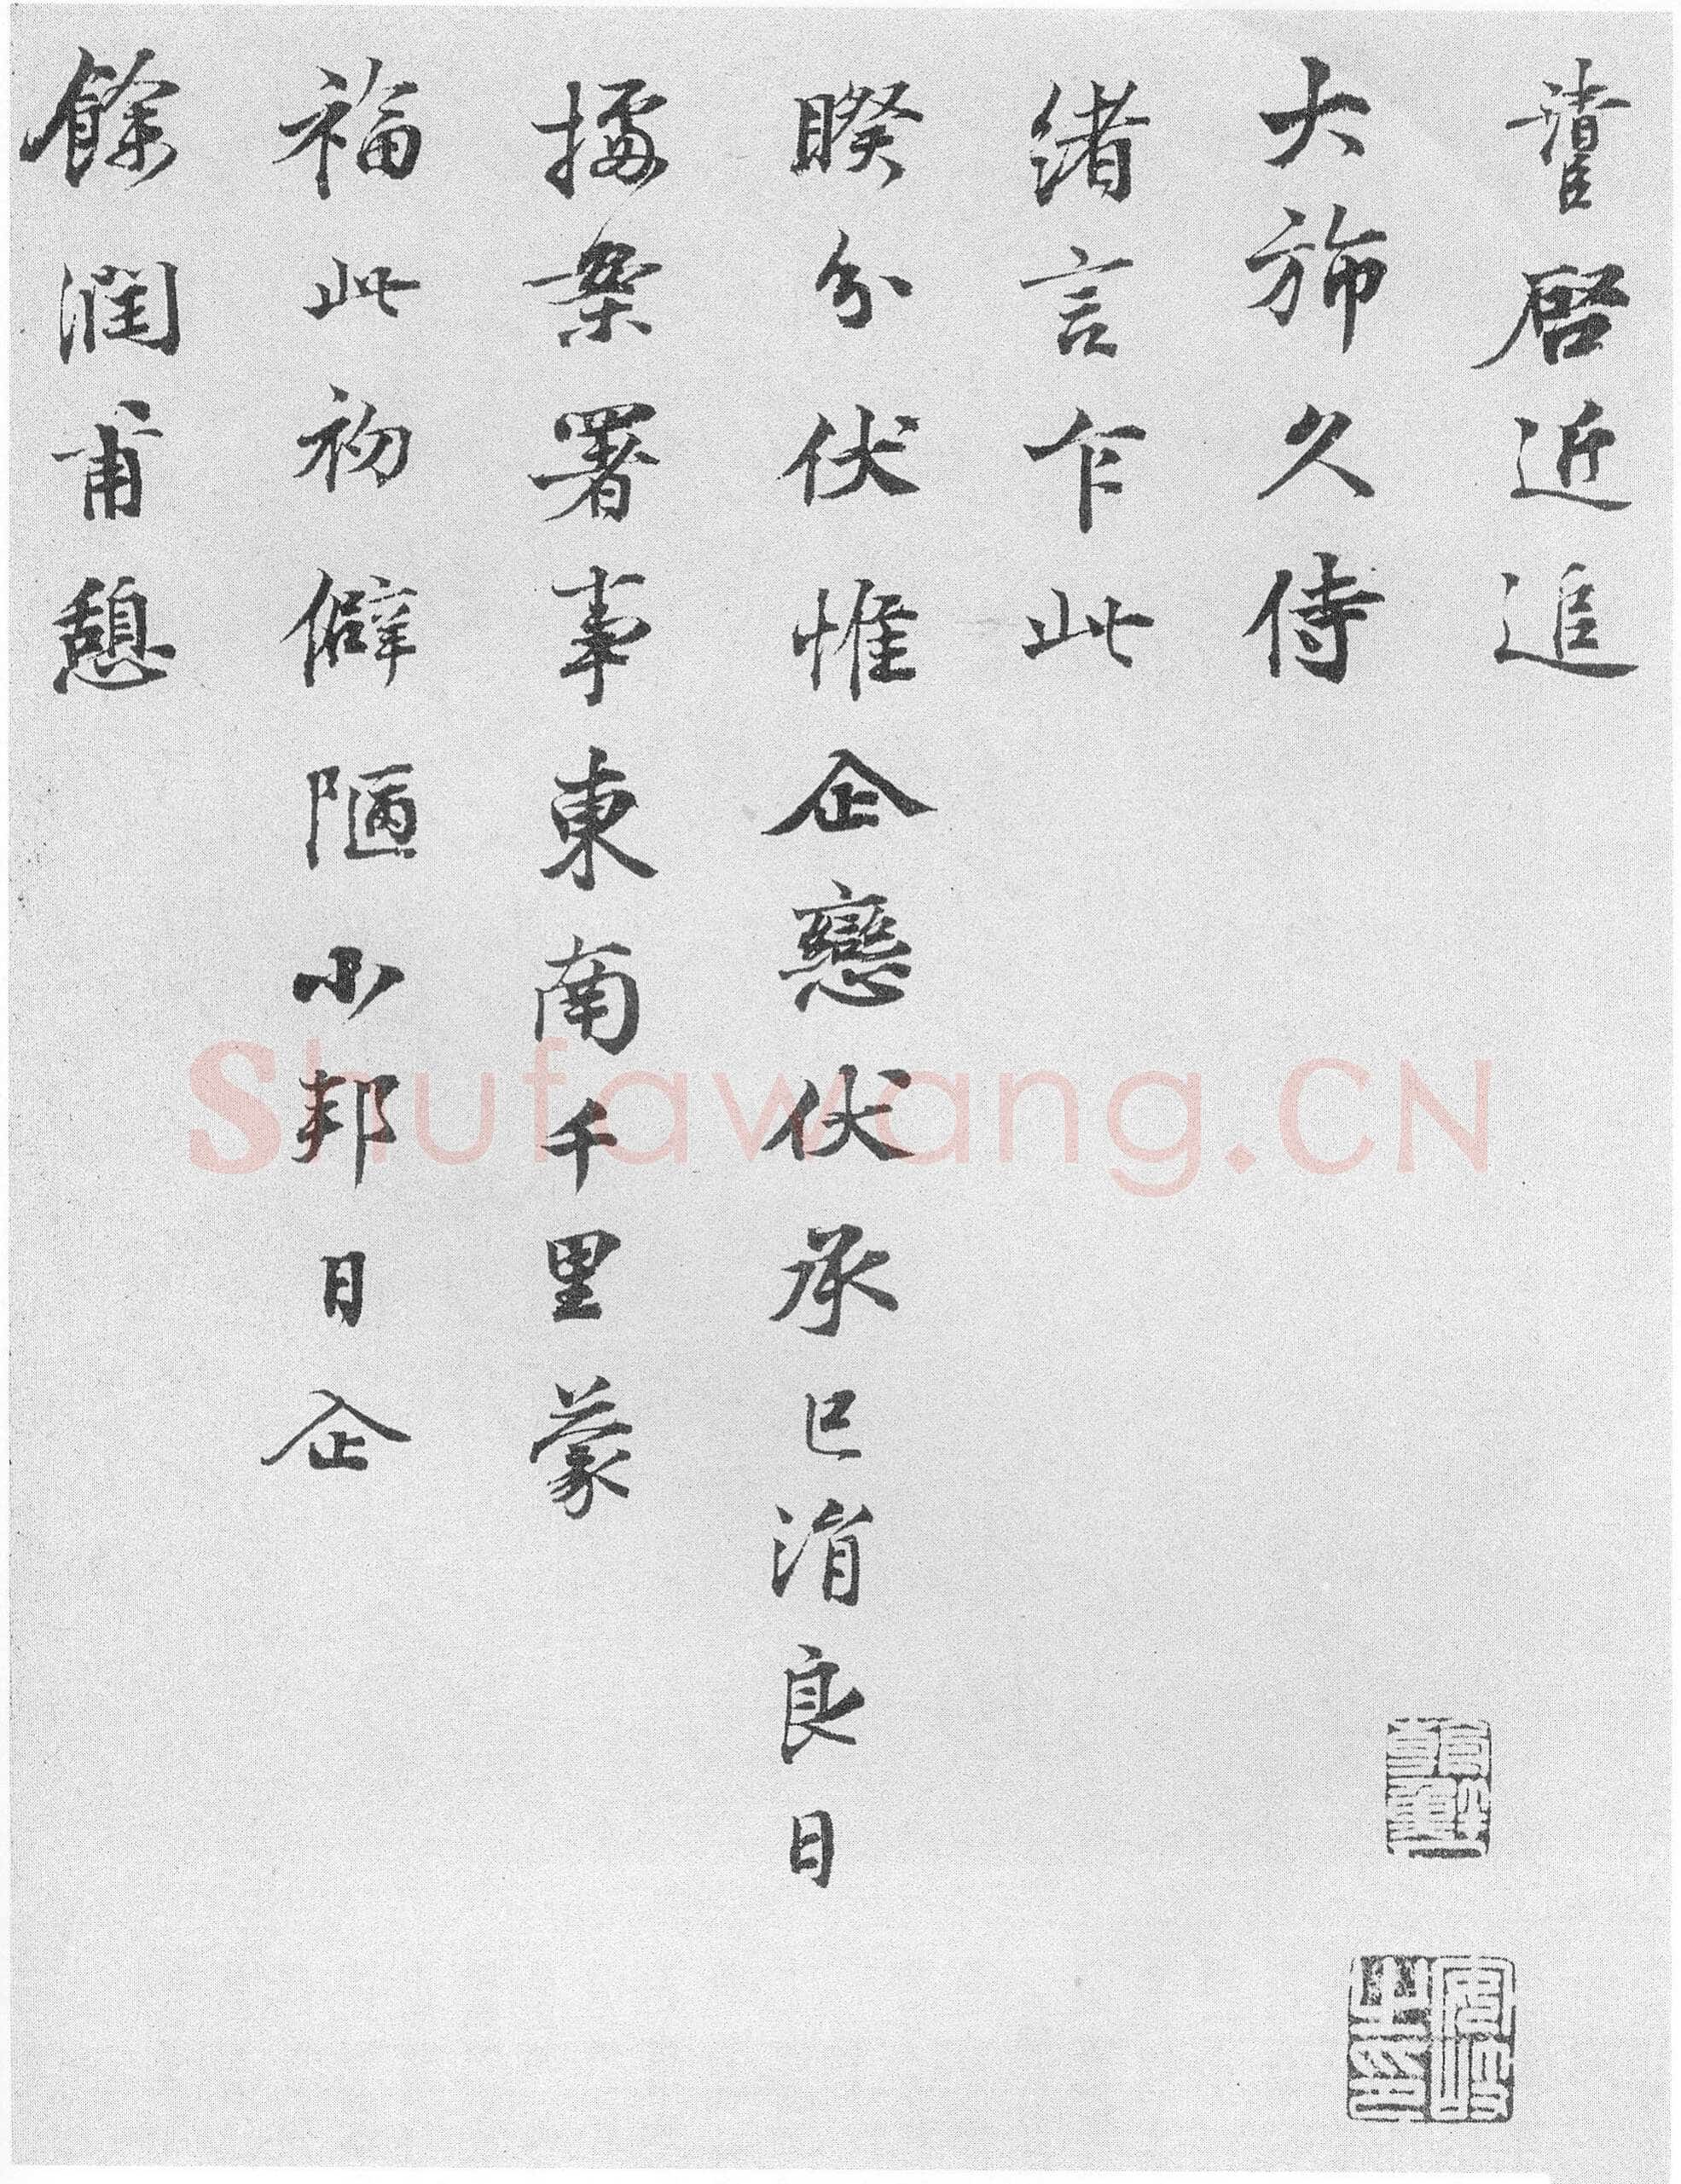 啓近追
大旆久侍
緒言乍此
睽分伏惟企戀伏承已涓良日
據案署事東南千里蒙
福此初僻陋小邦日企
餘潤甫憩
安岐之印
Shufawang.CN